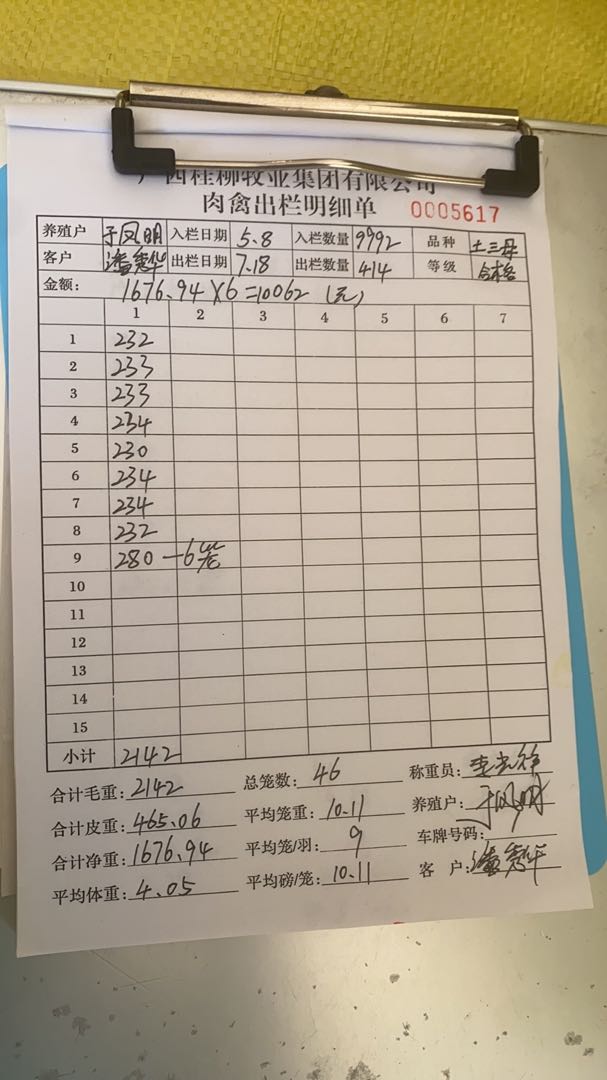 广西桂柳牧业集团有限公司
肉禽出栏明细单 0005617
养殖户 于凤明 入栏日期 5.8 入栏数量 9992 品种 土三母
客户 潘秀华 出栏日期 7.18 出栏数量 414 等级 合格
金额: 1676.94×6=10062(元)
1 2 3 4 5 6 7
1 232
2 233
3 233
4 234
5 230
6 234
7 234
8 232
9 280 —6笼
10
11
12
13
14
15
小计 2142
合计毛重: 2142 总笼数: 46 称重员:
合计皮重: 465.06 平均笼重: 10.11 养殖户: 于凤明
合计净重: 1676.94 平均笼/羽: 9 车牌号码:
平均体重: 4.05 平均磅/笼: 10.11 客 户: 潘秀华